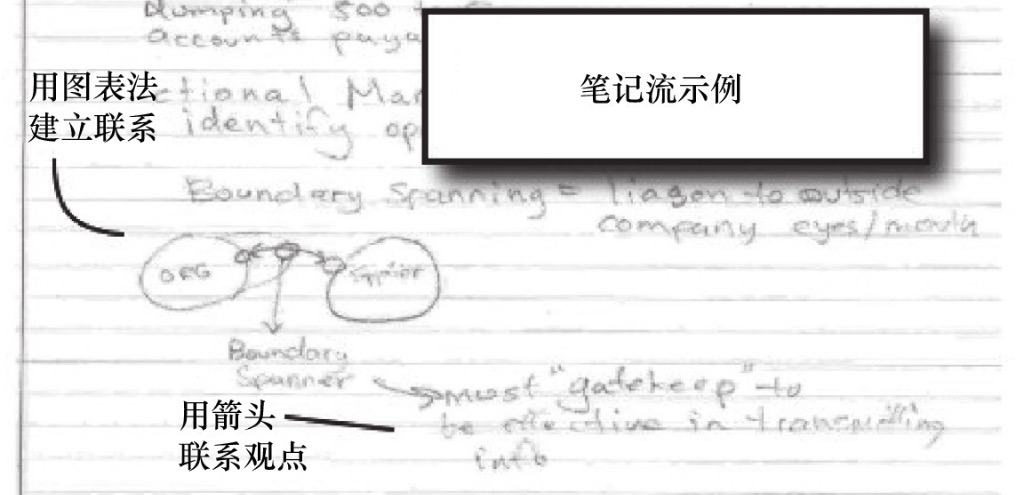 Dumping 500
accounts paya
笔记流示例
用图表法
建立联系
ctional Mar
identify op
Boundary Spanning = liason to outside
company eyes/mouth
ORG
Supplier
Boundary
Spanner
must "gatekeep" to
be effective in transmitting
info
用箭头
联系观点